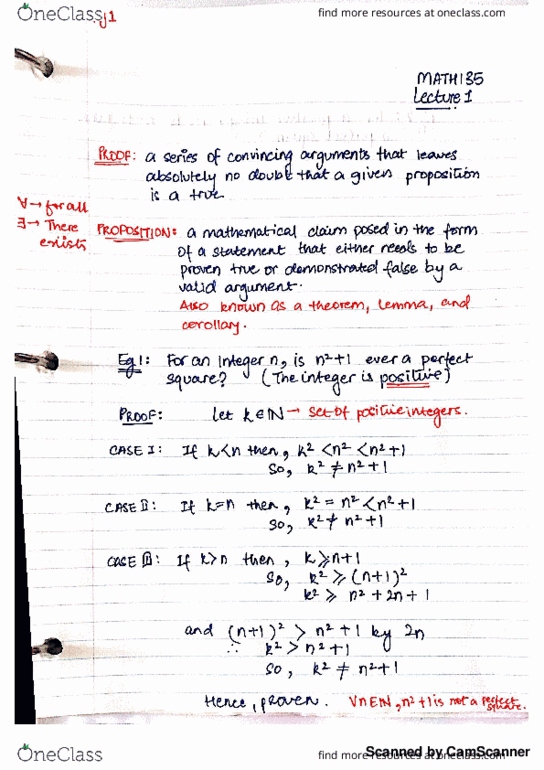 OneClass
.j1
find more resources at oneclass.com
MATH135
Lecture 1
PROOF: a series of convincing arguments that leaves
absolutely no doubt that a given proposition
is a true.
∀→ for all
∃→ There
exists
PROPOSITION: a mathematical claim posed in the form
of a statement that either needs to be
proven true or demonstrated false by a
valid argument.
Also known as a theorem, lemma, and
corollary.
Eg 1: For an integer n, is n²+1 ever a perfect
square? (The integer is positive)
PROOF: Let k∈ℕ → set of positive integers.
CASE I: If k<n then, k² < n² < n²+1
So, k² ≠ n²+1
CASE II: If k=n then, k² = n² < n²+1
So, k² ≠ n²+1
CASE III: If k>n then, k⩾n+1
So, k² ⩾ (n+1)²
k² ⩾ n²+2n+1
and (n+1)² > n²+1 by 2n
∴ k² > n²+1
So, k² ≠ n²+1
Hence, proven. ∀n∈ℕ, n²+1 is not a perfect
square.
OneClass
find more resources at oneclass.com
Scanned by CamScanner